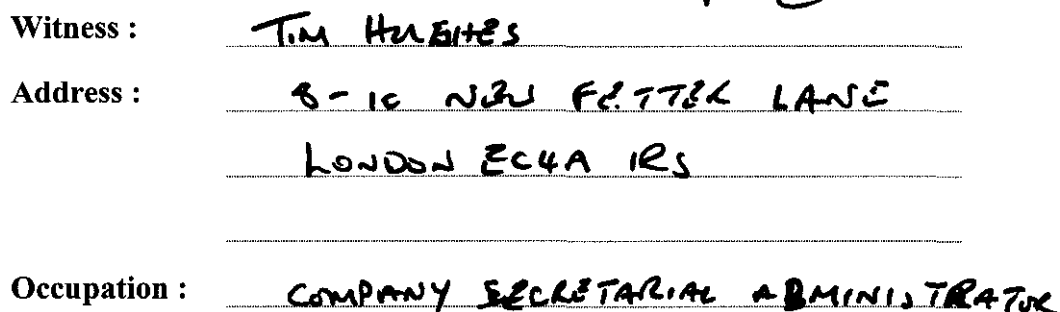 Witness : TIM HUGHES
Address : 8-10 NEW FETTER LANE
LONDON EC4A 1RS
Occupation : COMPANY SECRETARIAL ADMINISTRATOR